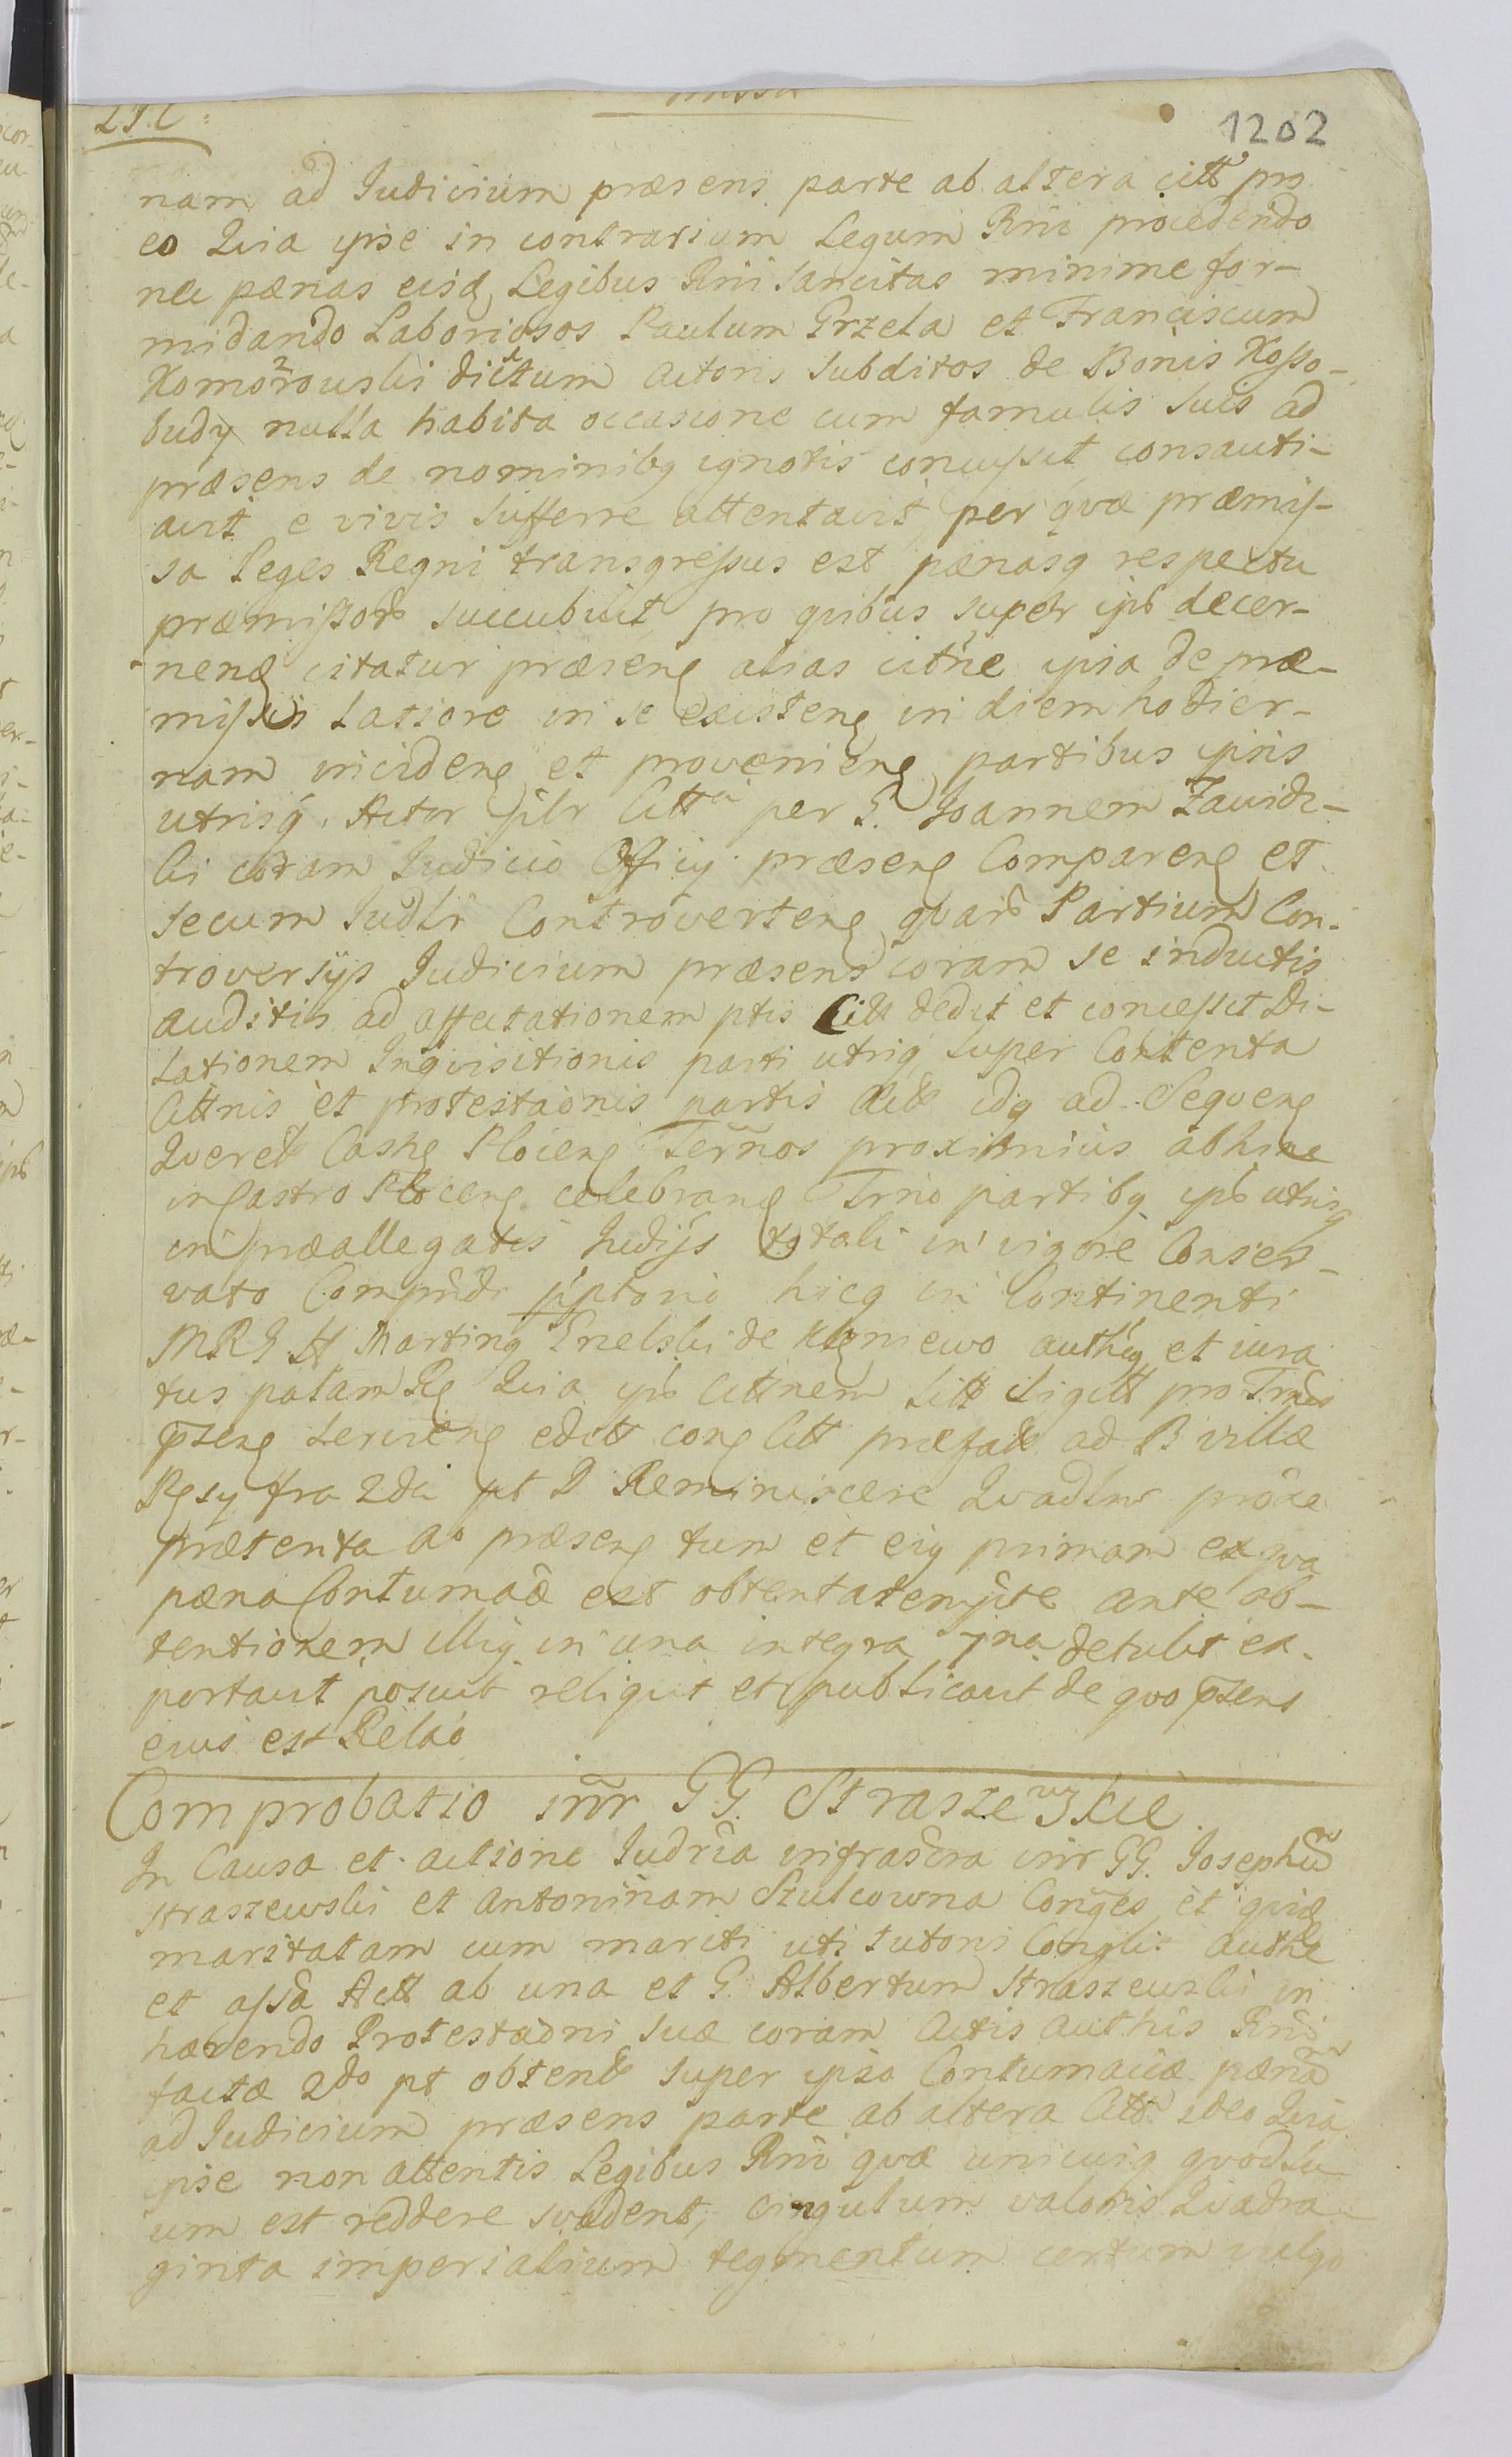 1202
nam ad Judicium præsens parte ab altera citt pro
eo Quia ipse in contrarium Legum Rni procedendo
nec pænas eisd Legibus Rni sancitas minime for-
midando Laboriosos Paulum Grzela et Franciscum
Komorowski dictum Actoris subditos de Bonis Kosso-
budy nulla habita occasione cum famulis suis ad
præsens de nominibq ignotis concussit consauti-
avit e vivis sufferre attentavit, per qvæ præmis-
sa Leges Regni transgressus est pænasq respectu
præmissor succubuit pro qvibus super ips decer-
nend citatur præsens alias cittne ipsa de præ-
missis latiore in se existenq in diem hodier-
nam inciden et provenien partibus ipsis
utrisq. Actor pslr Citt per G. Joannem Zawidz-
ki coram Judicio Officij præsen Comparen et
secum Judlr Controverten qvar Partium Con-
troversys Judicium præsens coram se inductis
auditis ad affectationem ptis Citt dedit et concessit Di-
lationem Inqvisitionis parti utriq super Contenta
Cittnis et protestaõnis partis Act idq ad Seqven
Qverel Castr Plocen Termos proximius abhinc
in Castro Plocen celebran Trno partibq ips utrisq
in præallegatis Judijs totali in vigore Conser-
vato
hicq in Continenti
MRG H Marting Gnelski de authq et iura
tus palam Rq Quia ips Cittnem Litt sigitt pro Trnis
p̄sens servien edit con Citt præfat ad B villæ
fra 2da pt D Reminiscere Qvadlm proxe
præterita Ao præsen tum et eiq primam ex qva
pæna Contumaciæ est obtenta ante ob-
tentionem illiq in una integra 7na detulit ex-
portavit posuit reliqvit et publicavit de qvo p̄sens
eius est Relaõ
Comprobatio inr GG. Straszewskie
In Causa et actione Judria infrascra inr GG. Josephum
Straszewski et Antoninam Szulcowna Conges et qvid
maritatam cum mariti uti tutoris Conglis authe
et assa Act ab una et G. Albertum Straszewski in
hærendo Protestaõni suæ coram Actis Authis Rni
factæ 2do pt obtent super ipso Contumaciæ pænam
ad Judicium præsens parte ab altera Citt ideo Quia
ipse non attentis Legibus Rni qvæ unicuiq qvod su
um est reddere svadent, cingulum valoris Qvadra-
ginta imperialium tegmentum certum vulgo